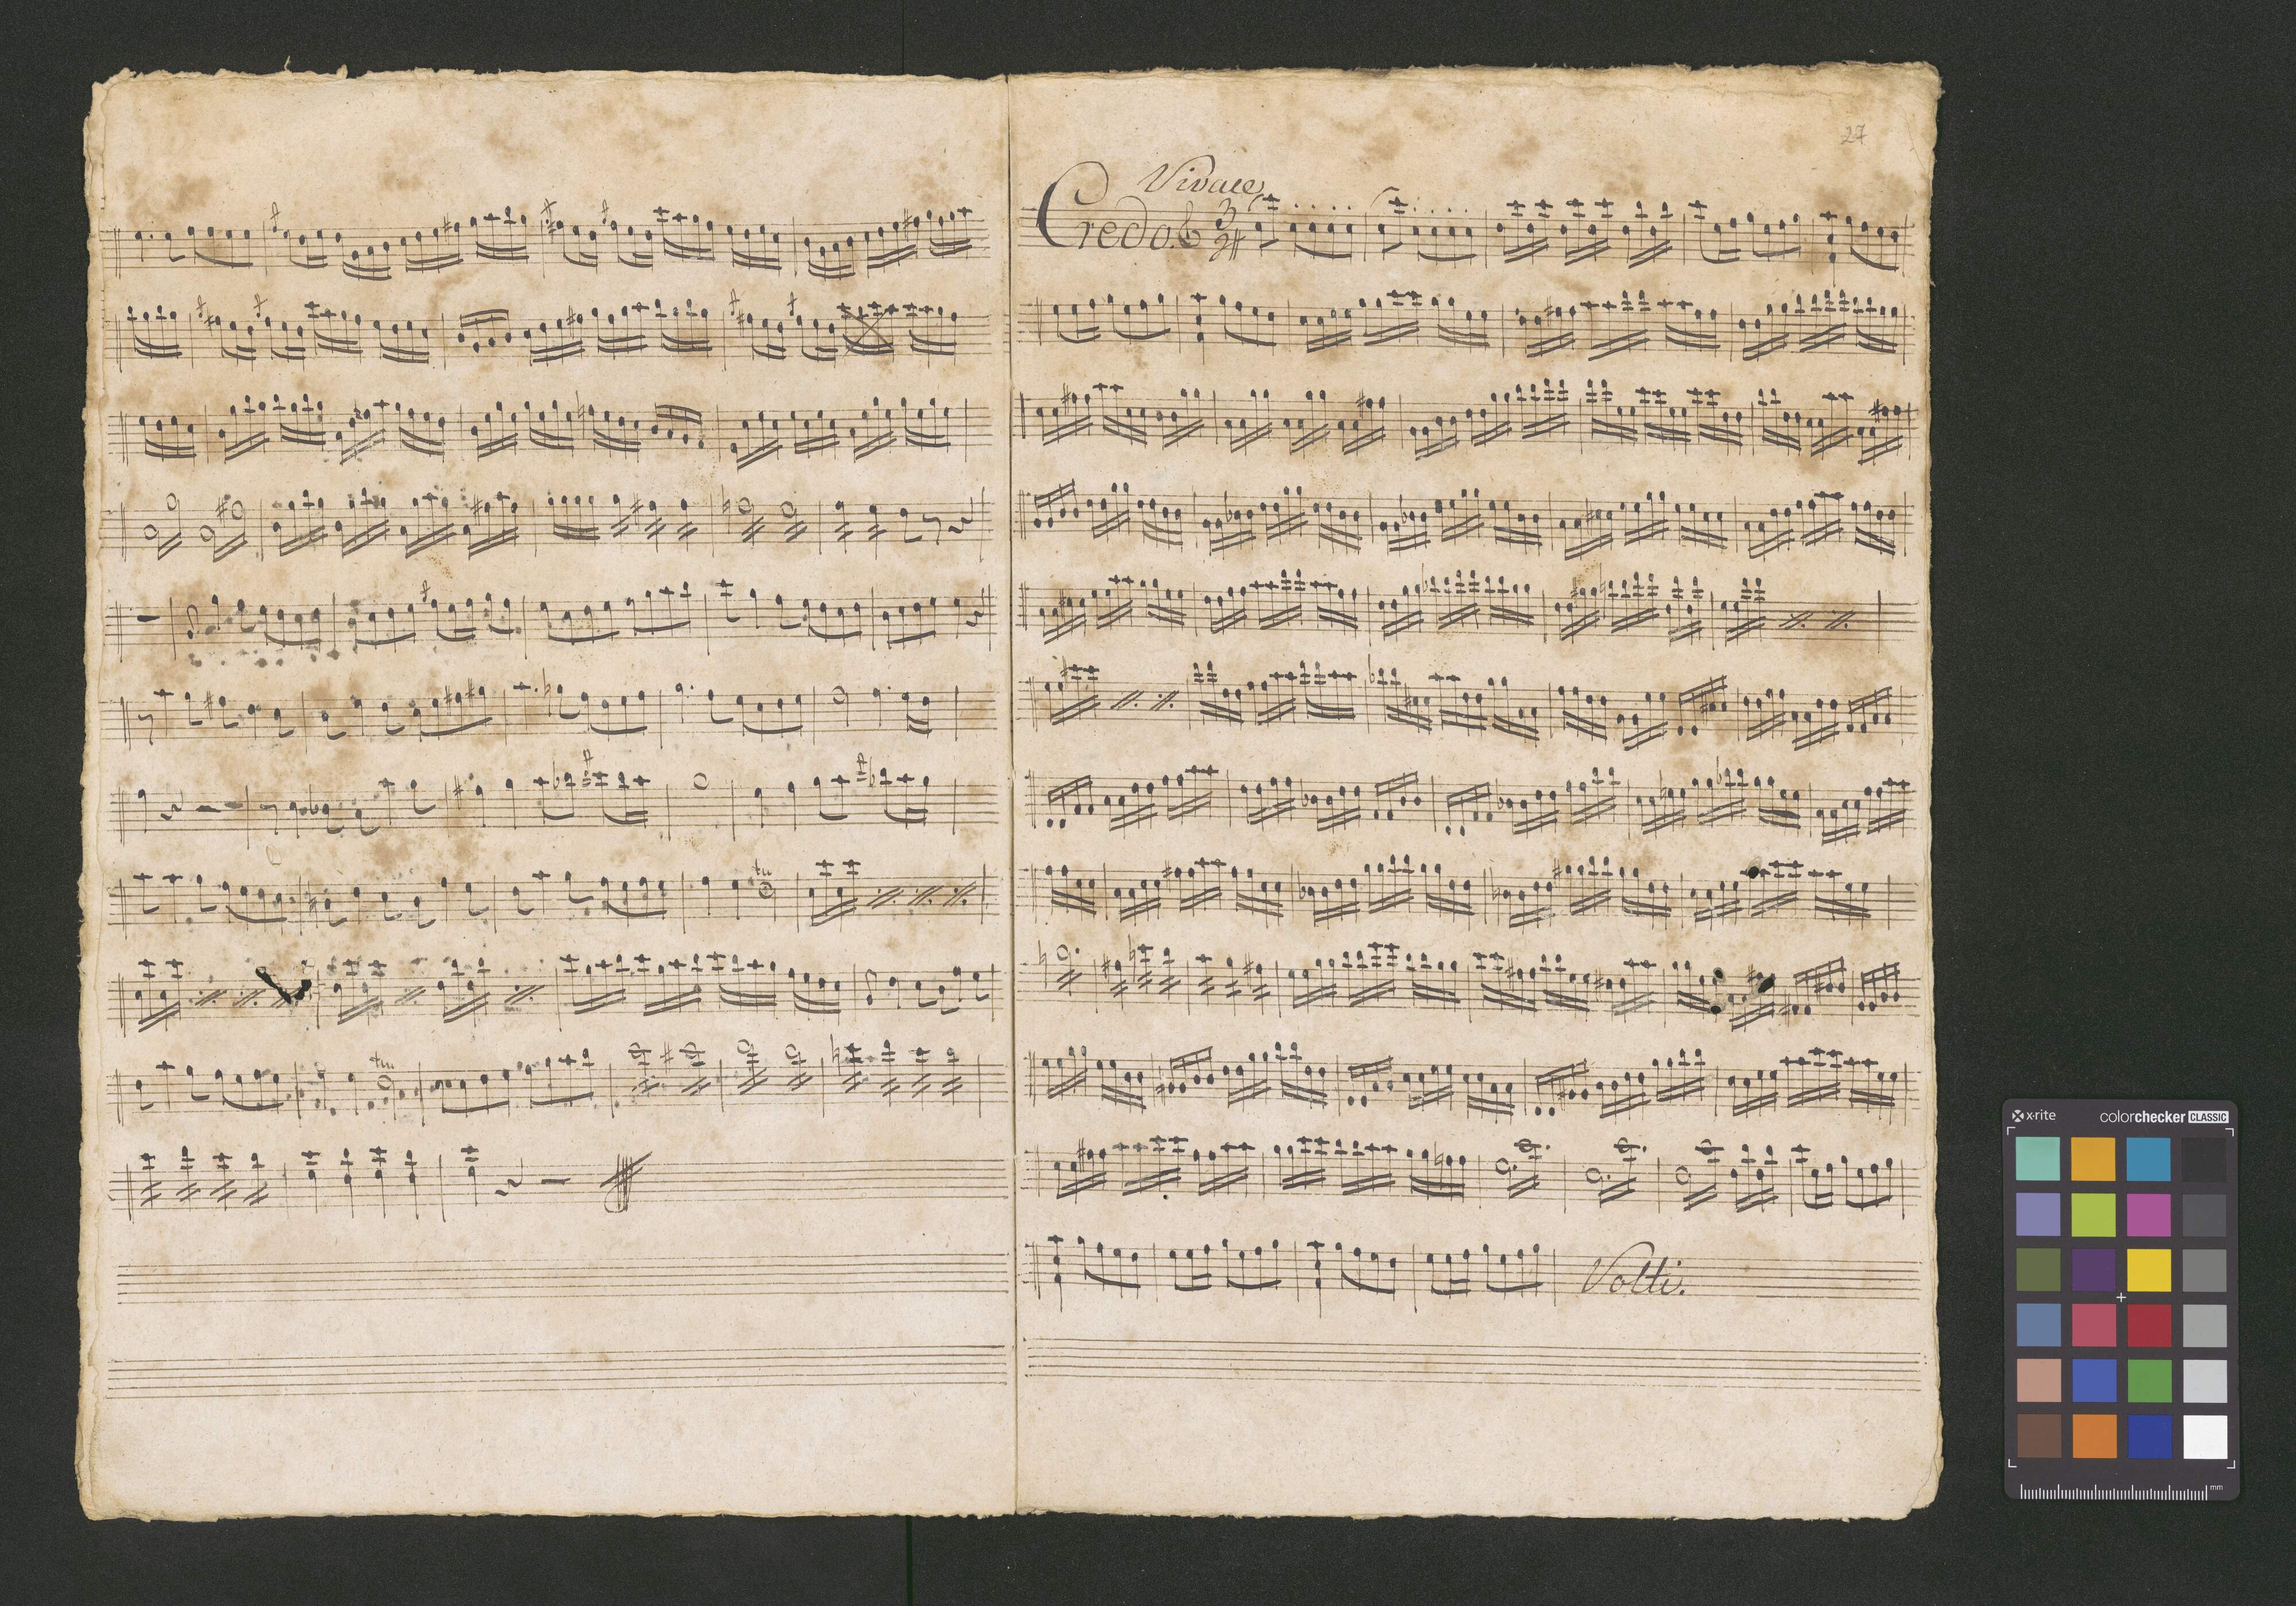 27
Vivace
Credo. 3
4
tr
tr
Volti.
x·rite colorchecker CLASSIC
mm